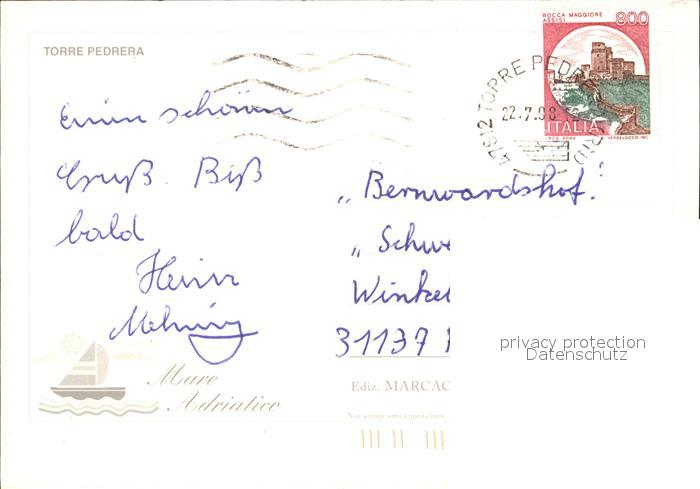 TORRE PEDRERA
ROCCA MAGGIORE
ASSISI
800
ITALIA
47812 TORRE PED
22.7.98
Einen schönen
Gruß. Biß
bald
Heinr
„Bernwardshof!
„Schwe
Winkel
31137
Mare
Adriatico
Ediz. MARCAC
Non scrivere sotto a questa linea
privacy protection
Datenschutz